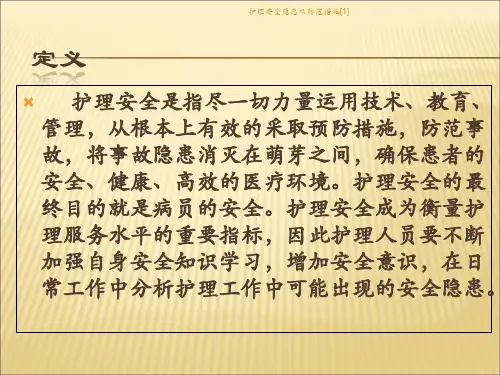 护理安全隐患及防范措施[1]
定义
护理安全是指尽一切力量运用技术、教育、
管理，从根本上有效的采取预防措施，防范事
故，将事故隐患消灭在萌芽之间，确保患者的
安全、健康、高效的医疗环境。护理安全的最
终目的就是病员的安全。护理安全成为衡量护
理服务水平的重要指标，因此护理人员要不断
加强自身安全知识学习，增加安全意识，在日
常工作中分析护理工作中可能出现的安全隐患。